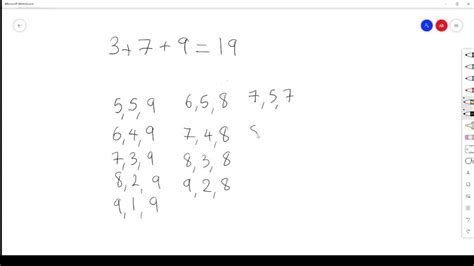 Microsoft Whiteboard
3+7+9=19
5,5,9 6,5,8 7,5,7
6,4,9 7,4,8
7,3,9 8,3,8
8,2,9 9,2,8
9,1,9